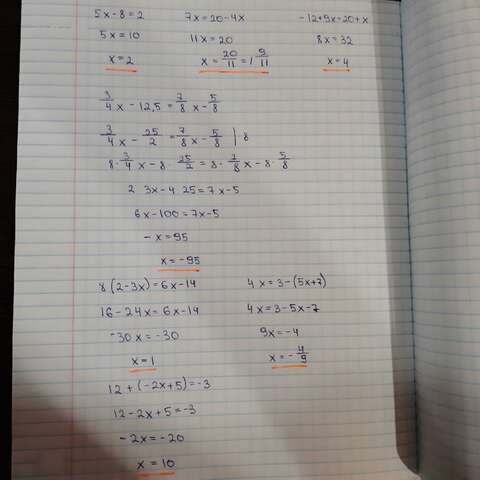 5x-8=2
5x=10
x=2
7x=20-4x
11x=20
x=20/11=1 9/11
-12+9x=20+x
8x=32
x=4
3/4x-12,5=7/8x-5/8
3/4x-25/2=7/8x-5/8 | 8
8·3/4x-8·25/2=8·7/8x-8·5/8
2 3x-4 25=7x-5
6x-100=7x-5
-x=95
x=-95
8(2-3x)=6x-14
16-24x=6x-14
-30x=-30
x=1
4x=3-(5x+7)
4x=3-5x-7
9x=-4
x=-4/9
12+(-2x+5)=-3
12-2x+5=-3
-2x=-20
x=10